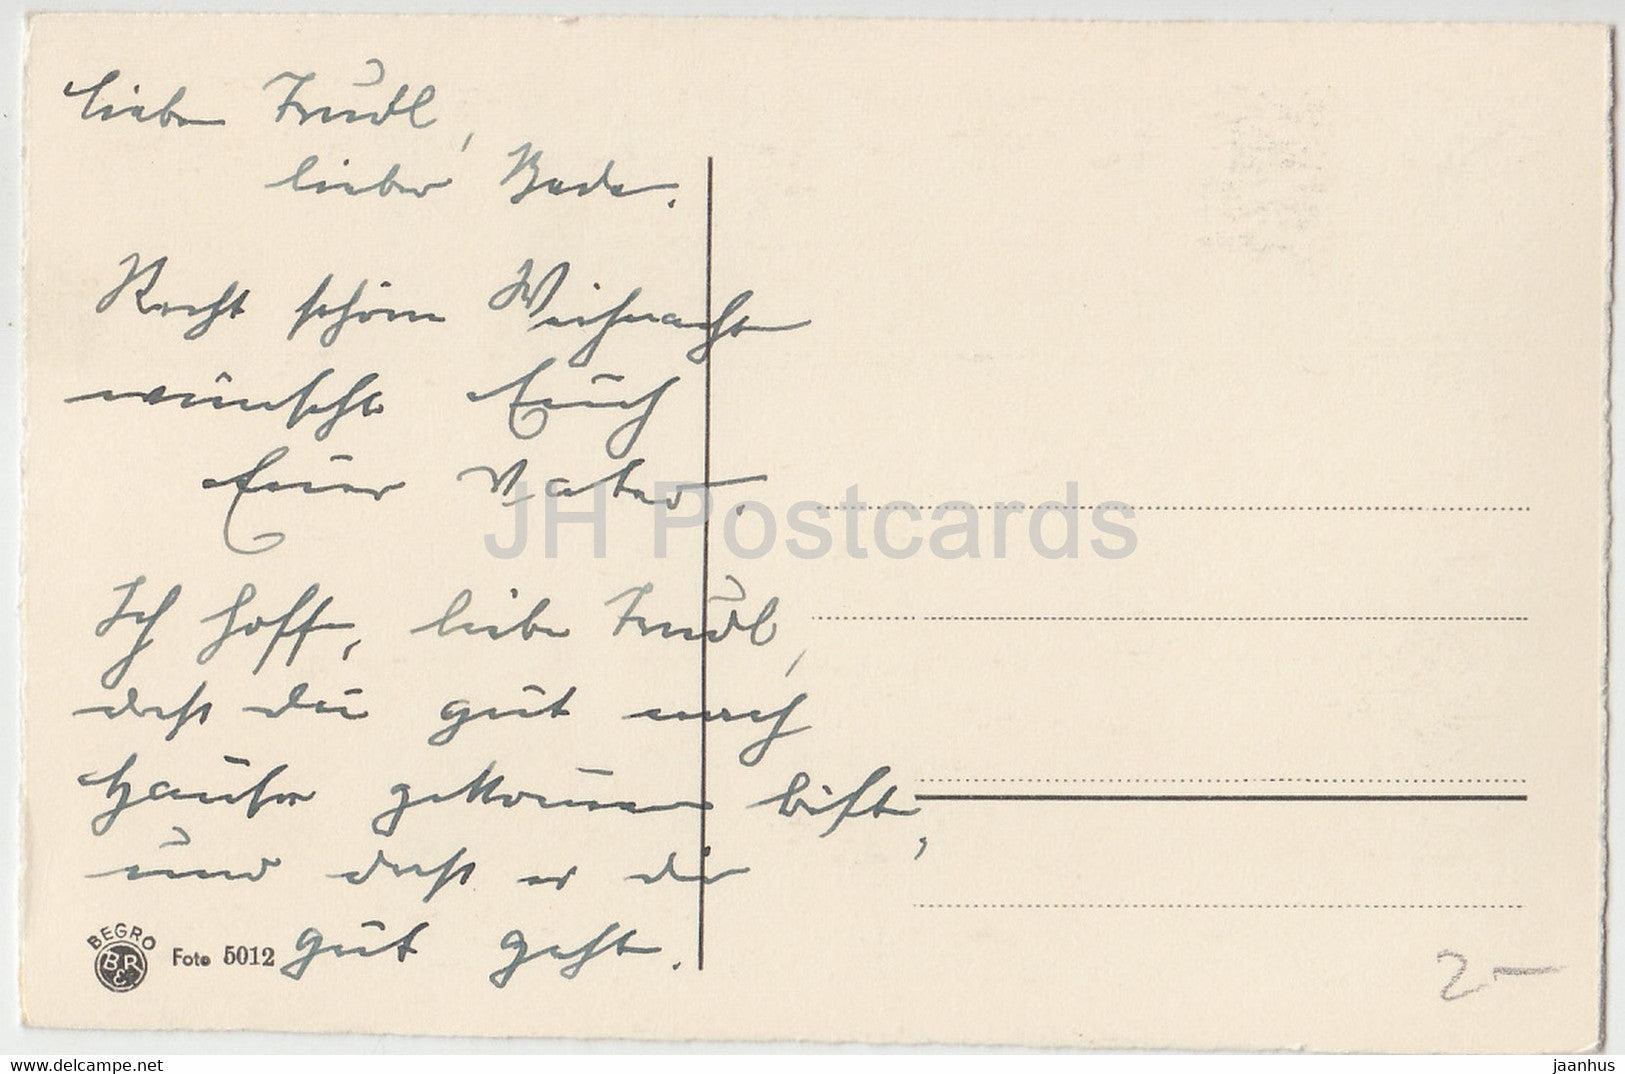 Liebe Trudl,
lieber Beda.
Recht schöne Weihnachten
wünscht Euch
Euer Vater.
Ich hoffe, liebe Trudl,
daß du gut nach
Hause gekommen bist,
und daß es dir
gut geht.
BEGRO
B&R
Foto 5012
2-
JH Postcards
delcampe.net
jaanhus